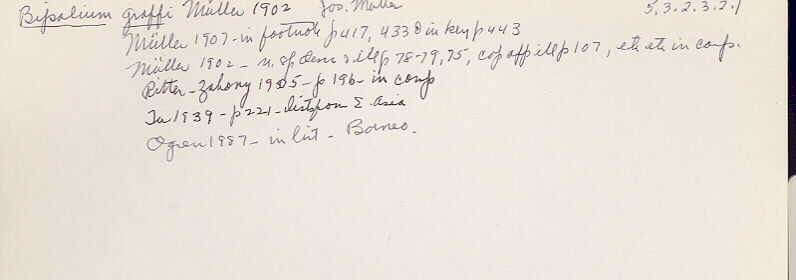 Bipalium graffi Müller 1902 Jos. Müller 5.3.2.3.2.1
Müller 1907 - in footnote p 417, 433 & in key p 443
Müller 1902 - n. sp. descr & ill p 78-79, 75, cop app ill p 107, etc etc in comp.
Ritter-Zahony 1905 - p 196 - in comp
Tu 1939 - p 221 - list from E. Asia
Ogren 1987 - in list - Borneo.